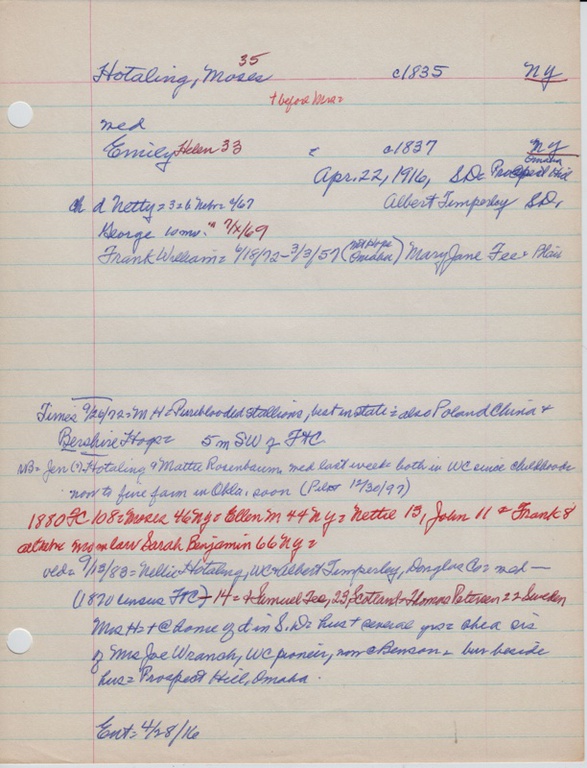 35
Hotaling, Moses c1835 NY
+ before Mrs =
med
Emily Helen 33 = c1837 NY
Omaha
Apr. 22, 1916, S.D = Prospect Hill
ch d Netty = 3 = 6 Nebr = 4/67 Albert Timperley S.D,
George 10 mo. " 7/x/69
Frank William = 6/18/72 - 3/3/57 (Mt Hope Omaha) Mary Jane Fee + Blair
Times 9/26/72 = M H = Pureblooded stallions, best in state = also Poland China +
Bershire Hogs = 5 m SW of FtC
NB = Jen (?) Hotaling & Mattie Rosenbaum med last week = both in WC since childhood =
now to fine farm in Okla. soon (Pilot 12/30/97)
1880 FC 108 = Moses 46 NY = Ellen M 44 NY = Nettie 13, John 11 + Frank 8
mom law Sarah Benjamin 66 NY =
9/13/83 = Nellie Hotaling, WC + Albert Timperley, Douglas Co = med —
(1870 census FtC) - 14 = + Samuel Fee, 23, Scotland + Thomas Petersen 22 Sweden
Mrs H = + @ home of d in S.D = hus + several yrs = ch + a sis
of Mrs Joe Wranch, WC pioneer, now @ Benson = bur beside
hus = Prospect Hill, Omaha.
Ent = 4/28/16